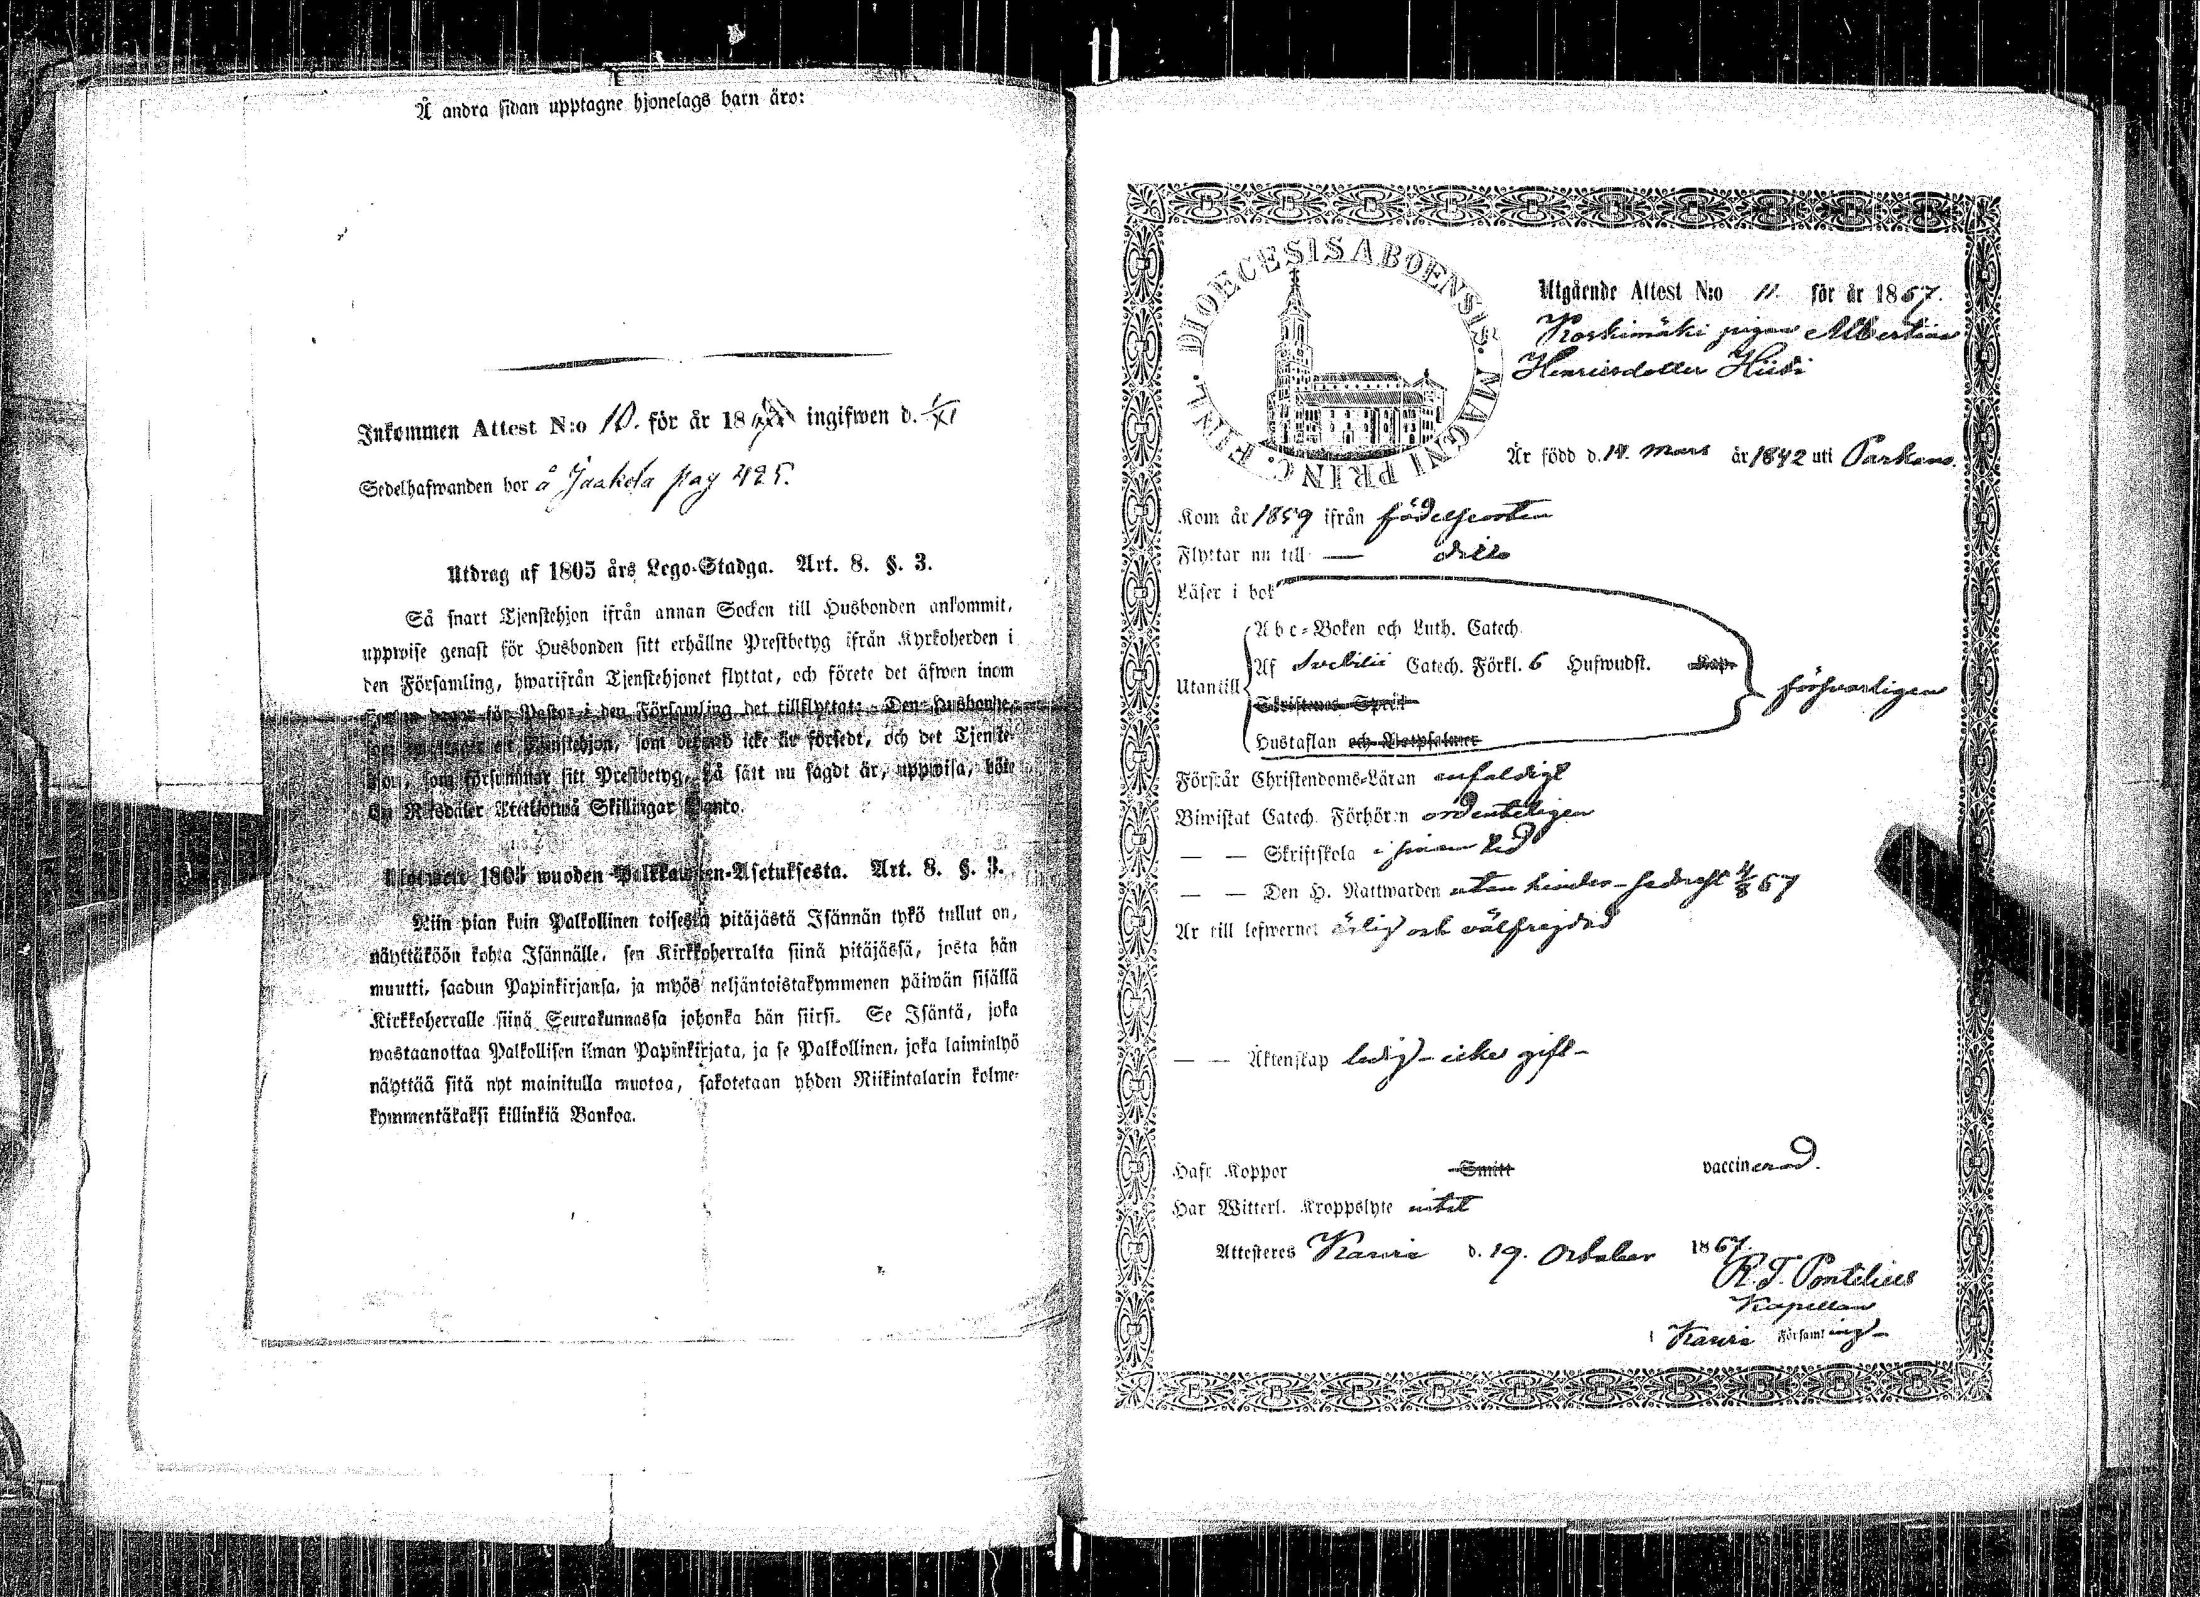 Å andra sidan upptagne hjonelags barn äro:
Inkommen Attest N:o 10. för år 18 ingifwen d. 1/XI
Sedelhafwanden bor å Jaakola pag 425.
Utdrag af 1805 års Lego-Stadga. Art. 8. §. 3.
Så snart Tjenstehjon ifrån annan Socken till Husbonden ankommit,
uppwise genast för Husbonden sitt erhållne Prestbetyg ifrån Kyrkoherden i
den Församling, hwarifrån Tjenstehjonet flyttat, och förete det äfwen inom
dagar för Pastor i den Församling det tillflyttat; Den husbonde,
som ett Tjenstehjon, som dermed icke är försedt, och det Tjenste-
hjon, som försummar sitt Prestbetyg, på sätt nu sagdt är, uppwisa, böte
En Riksdaler Trettiotwå Skillingar Banco.
1805 wuoden Palkkawäen-Asetuksesta. Art. 8. §. 3.
Niin pian kuin Palkollinen toisesta pitäjästä Isännän tykö tullut on,
näyttäköön kohta Isännälle, sen Kirkkoherralta siinä pitäjässä, josta hän
muutti, saadun Papinkirjansa, ja myös neljäntoistakymmenen päiwän sisällä
Kirkkoherralle siinä Seurakunnassa johonka hän siirsi. Se Isäntä, joka
wastaanottaa Palkollisen ilman Papinkirjata, ja se Palkollinen, joka laiminlyö
näyttää sitä nyt mainitulla muotoa, sakotetaan yhden Riikintalarin kolme-
kymmentäkaksi killinkiä Bankoa.
DIOECESIS ABOENSIS. MAGNI PRINC. FINL.
Utgående Attest N:o 11. för år 1867.
Koskimäki pigan Albertina
Henriksdotter Hiisi
Är född d. 18. Mars år 1842 uti Parkano.
Kom år 1859 ifrån födelseorten
Flyttar nu till — dito
Läser i bok
Abc-Boken och Luth. Catech.
Utantill Af Svebilii Catech. Förkl. 6 Hufwudst. Kap. försvarligen
Skriftenes Språk
Hustaflan och Botpsalmer
Förstår Christendoms-Läran enfaldigt
Biwistat Catech. Förhören ordenteligen
— — Skriftskola i sinom tid
— — Den H. Nattwarden utan hinder – sednast 4/8 67
Är till lefwernet ärlig och välfrejdad
— — Äktenskap ledig – icke gift –
Haft Koppor Smitt vaccinerad.
Har Witterl. Kroppslyte intet
Attesteres Karvia d. 19. October 1867.
R. T. Pontelius
Kapellan
i Karvia Församling –